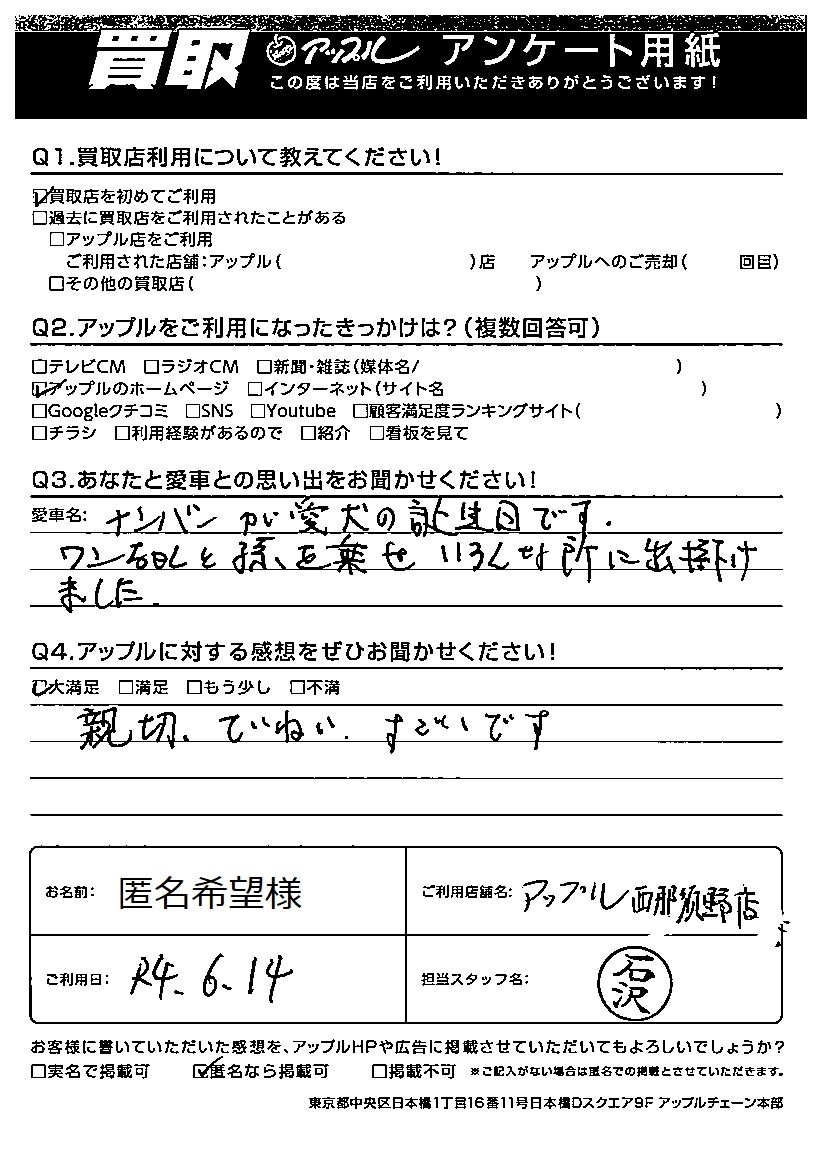 買取 アップル アンケート用紙
この度は当店をご利用いただきありがとうございます!
Q1.買取店利用について教えてください!
☑買取店を初めてご利用
□過去に買取店をご利用されたことがある
□アップル店をご利用
ご利用された店舗:アップル( )店 アップルへのご売却( 回目)
□その他の買取店( )
Q2.アップルをご利用になったきっかけは?(複数回答可)
□テレビCM □ラジオCM □新聞・雑誌(媒体名/ )
☑アップルのホームページ □インターネット(サイト名 )
□Googleクチコミ □SNS □Youtube □顧客満足度ランキングサイト( )
□チラシ □利用経験があるので □紹介 □看板を見て
Q3.あなたと愛車との思い出をお聞かせください!
愛車名: ナンバーが愛犬の誕生日です.
ワン と孫、を乗せ いろんな所に出掛け
ました.
Q4.アップルに対する感想をぜひお聞かせください!
☑大満足 □満足 □もう少し □不満
親切、ていねい.すごいです
お名前: 匿名希望様 ご利用店舗名: アップル西那須野店
ご利用日: R4.6.14 担当スタッフ名: 石沢
お客様に書いていただいた感想を、アップルHPや広告に掲載させていただいてもよろしいでしょうか?
□実名で掲載可 ☑匿名なら掲載可 □掲載不可 ※ご記入がない場合は匿名での掲載とさせていただきます。
東京都中央区日本橋1丁目16番11号日本橋Dスクエア9F アップルチェーン本部